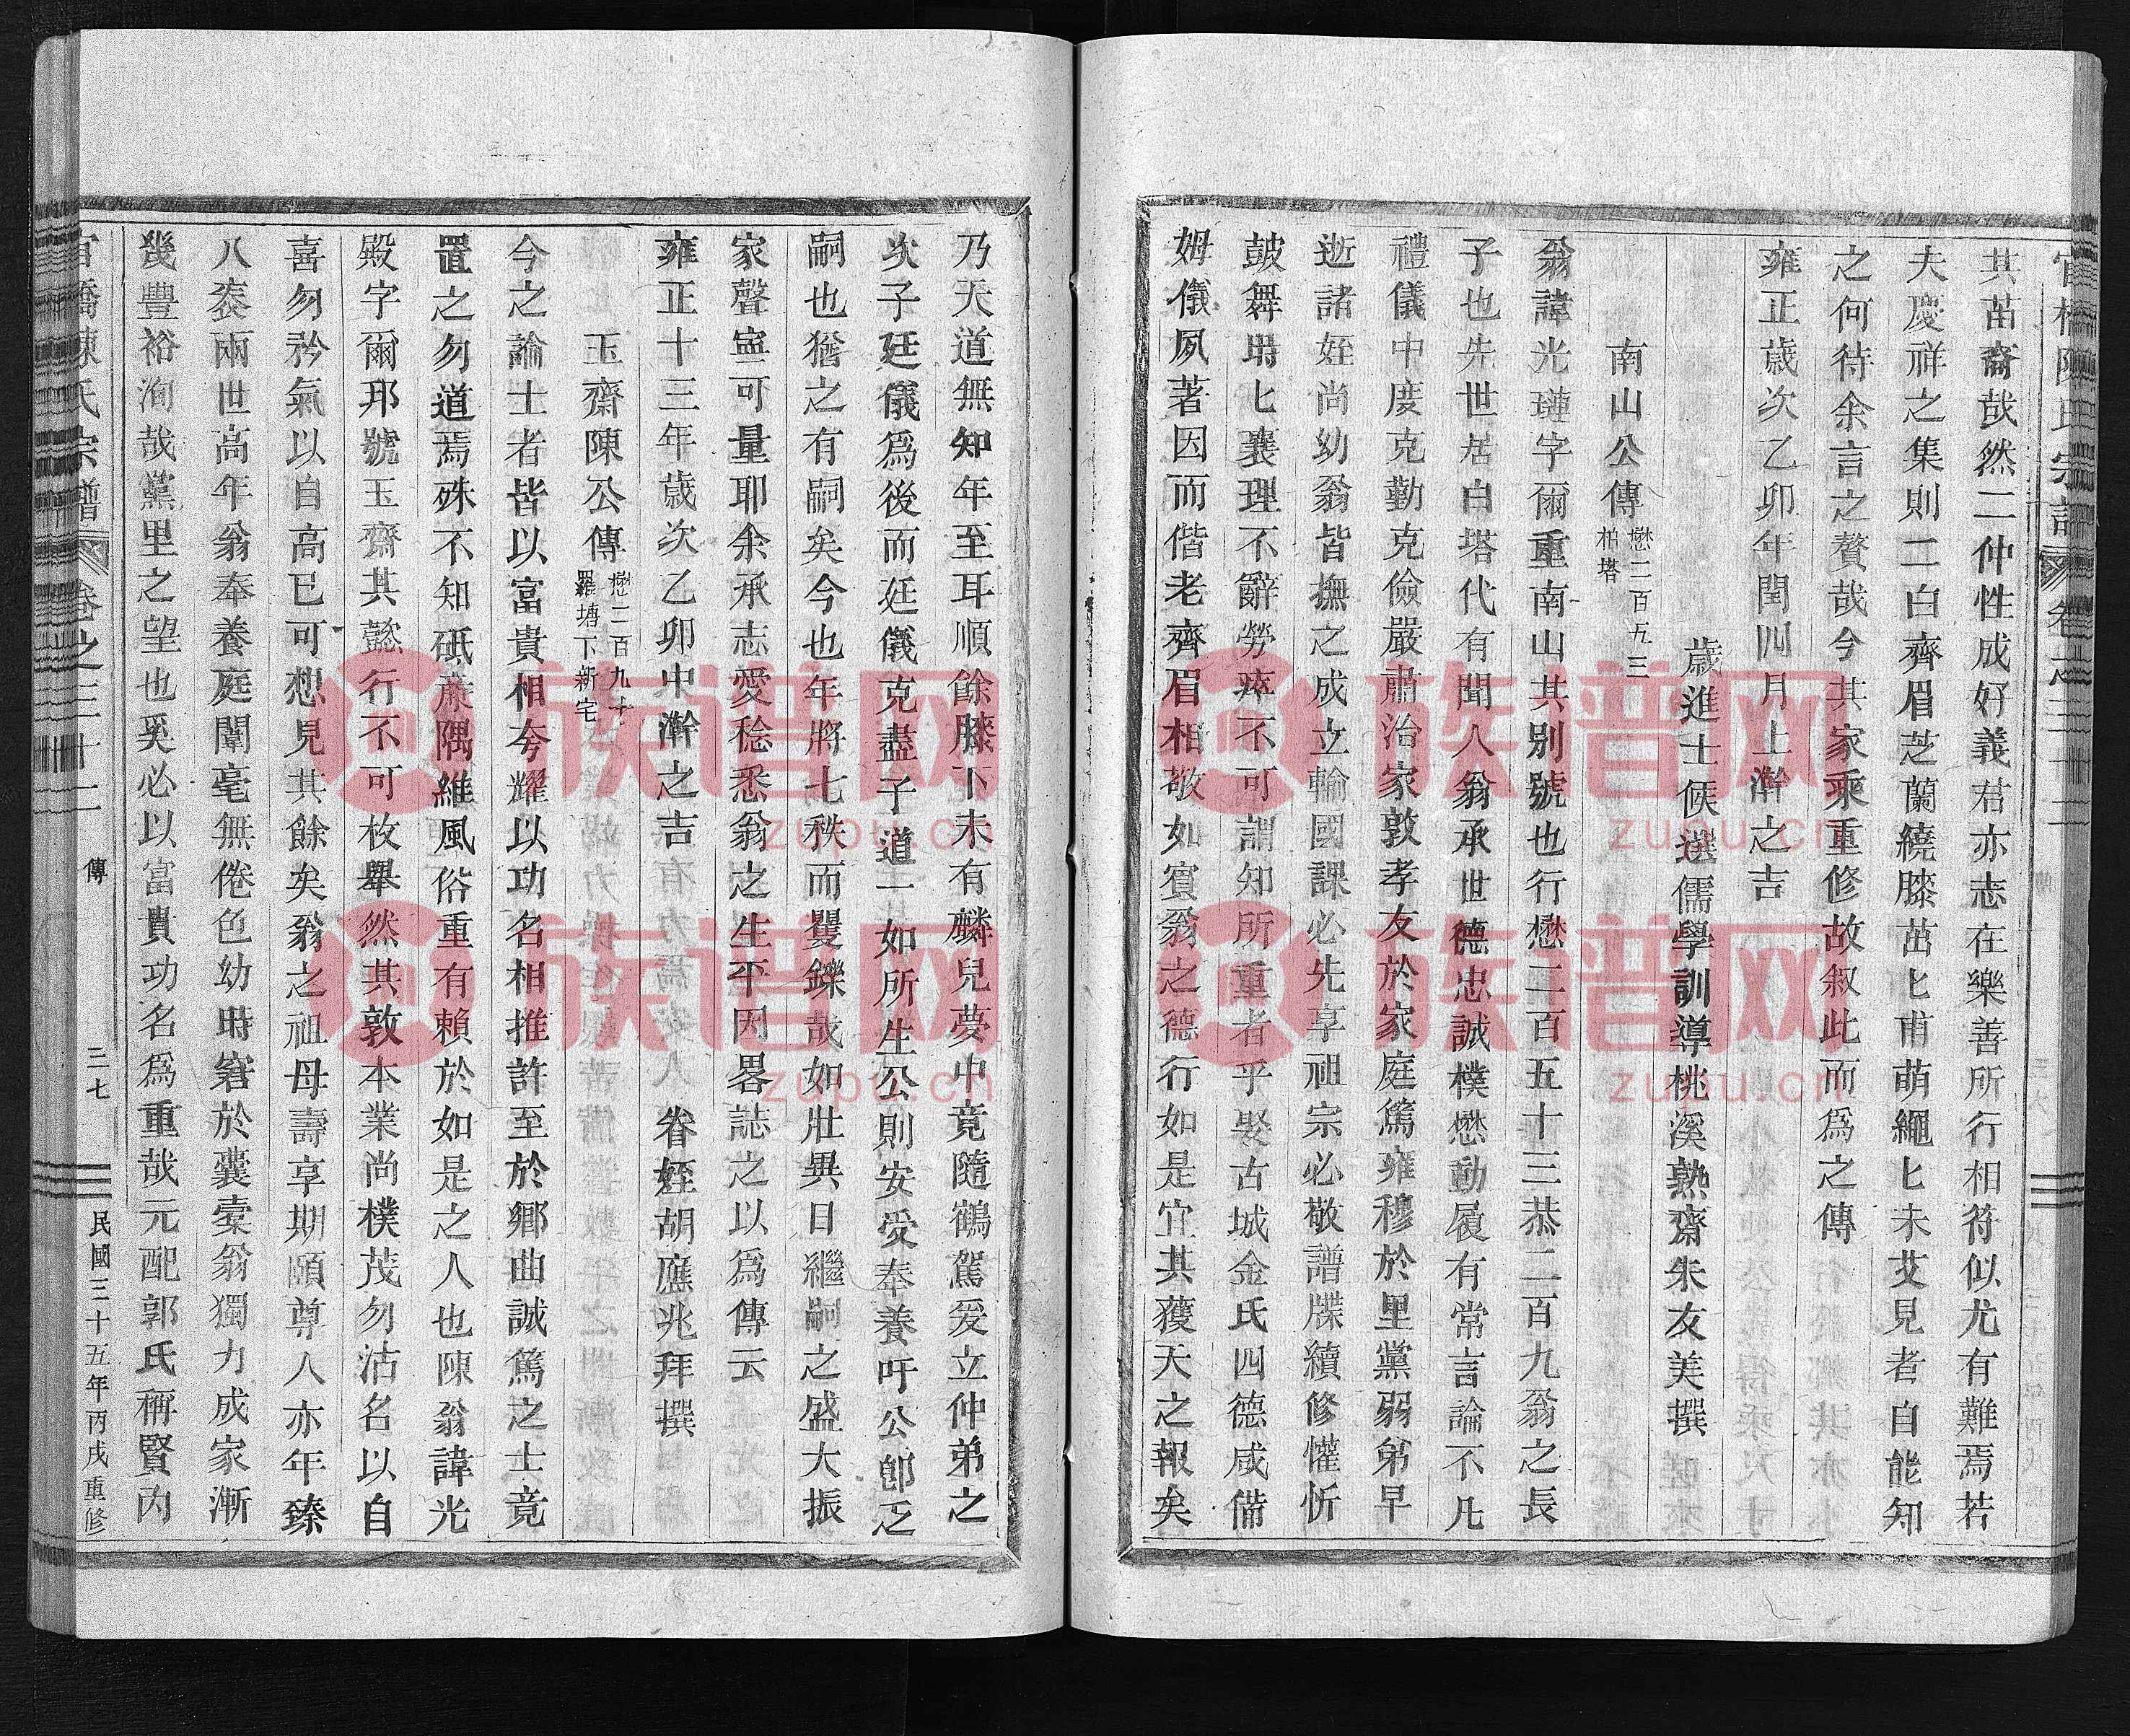 其苗裔哉然二仲性成好義君亦志在樂善所行相符似尤有難焉若
夫慶祥之集則二白齊眉芝蘭繞膝茁匕甫萌繩匕未艾見者自能知
之何待余言之贅哉今其家乘重修故敘此而為之傳
雍正歲次乙卯年閏四月上澣之吉
歲進士候選儒學訓導桃溪熟齋朱友美撰
南山公傳 懋二百五三 柏塔
翁諱光璉字爾重南山其別號也行懋二百五十三恭二百九翁之長
子也先世居白塔代有聞人翁承世德忠誠樸懋動履有常言論不凡
禮儀中度克勤克儉嚴肅治家敦孝友於家庭篤雍穆於里黨弱弟早
逝諸姪尚幼翁皆撫之成立輸國課必先享祖宗必敬譜牒續修懽忻
鼓舞時匕襄理不辭勞瘁不可謂知所重者乎娶古城金氏四德咸備
姆儀夙著因而偕老齊眉相敬如賓翁之德行如是宜其獲天之報矣
乃天道無知年至耳順餘膝下未有麟兒夢中竟隨鶴駕爰立仲弟之
次子廷儀為後而廷儀克盡子道一如所生公則安受奉養吁公郎乏
嗣也猶之有嗣矣今也年將七秩而矍鑠哉如壯異日繼嗣之盛大振
家聲寧可量耶余承志愛稔悉翁之生平因畧誌之以為傳云
雍正十三年歲次乙卯中澣之吉 眷姪胡應兆拜撰
玉齋陳公傳 懋二百九十 羅塘下新宅
今之論士者皆以富貴相夸耀以功名相推許至於鄉曲誠篤之士竟
置之勿道焉殊不知砥蔗隅維風俗重有賴於如是之人也陳翁諱光
殿字爾邦號玉齋其懿行不可枚舉然其敦本業尚樸茂勿沽名以自
喜勿矜氣以自高已可想見其餘矣翁之祖母壽享期頤尊人亦年臻
八袠兩世高年翁奉養庭闈毫無倦色幼時窘於囊槖翁獨力成家漸
幾豐裕洵哉黨里之望也奚必以富貴功名為重哉元配郭氏稱賢內
官橋陳氏宗譜 卷之三十二 傳 三七 民國三十五年丙戌重修
族谱网
zupu.cn
族谱网
zupu.cn
族谱网
zupu.cn
族谱网
zupu.cn